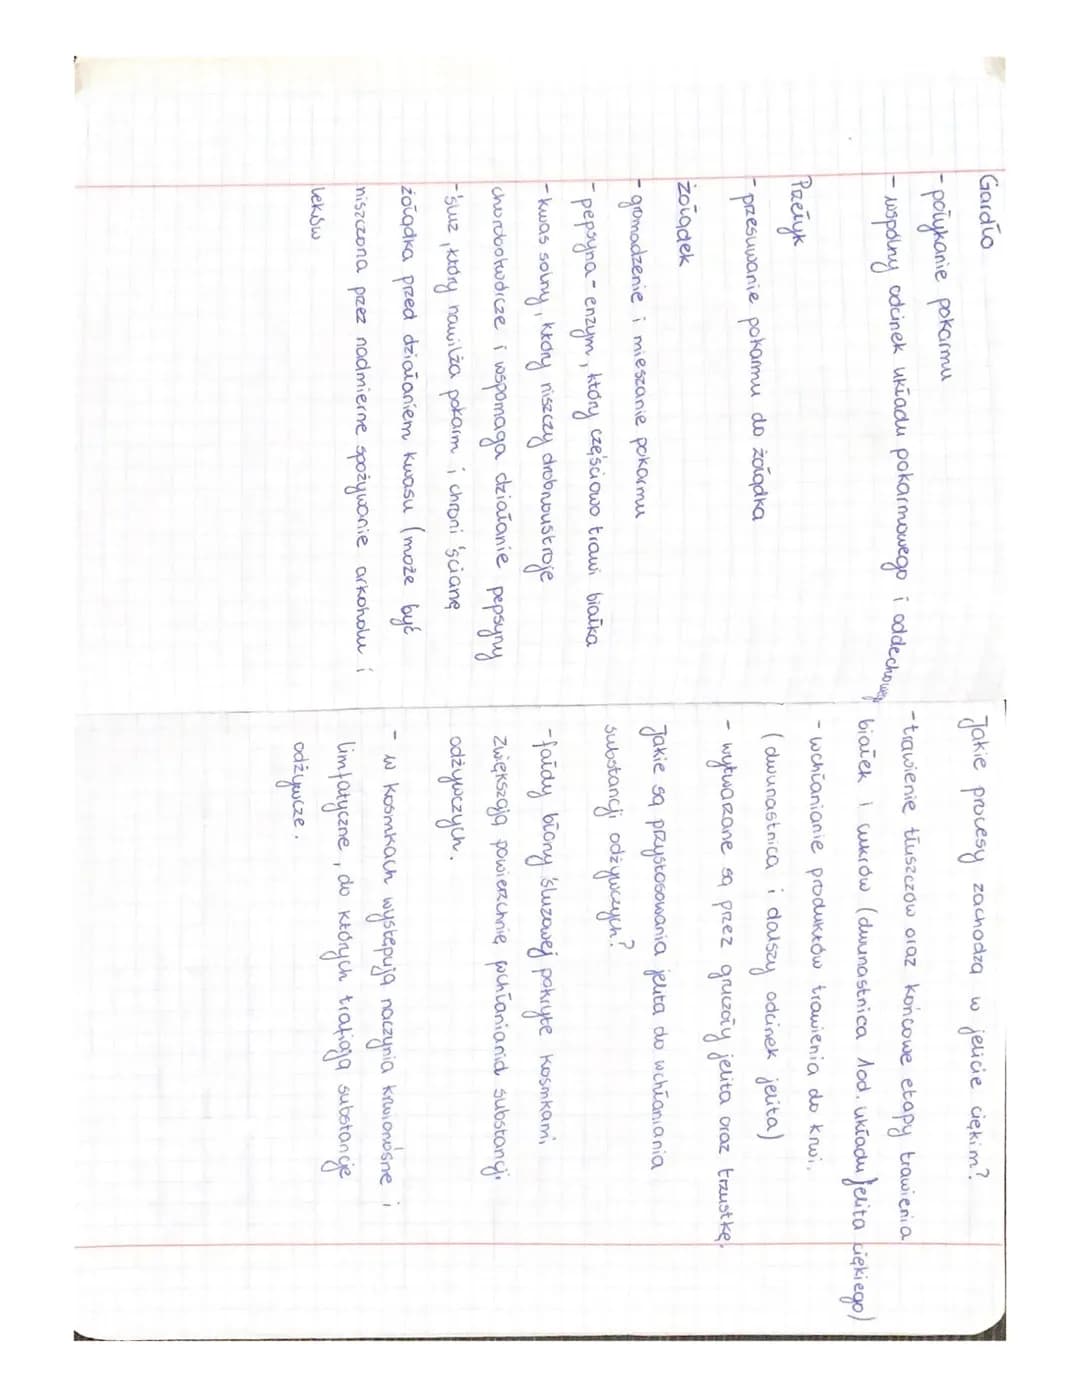 Gardło
- połykanie pokarmu
- wspólny odcinek układu pokarmowego i oddechowego
Przełyk
- przesuwanie pokarmu do żołądka
żołądek
- gromadzenie i mieszanie pokarmu
- pepsyna - enzym, który częściowo trawi białka
- kwas solny, który niszczy drobnoustroje
chorobotwórcze i wspomaga działanie pepsyny
- śluz, który nawilża pokarm i chroni ścianę
żołądka przed działaniem kwasu (może być
niszczona przez nadmierne spożywanie arkoholu i
leków
Jakie procesy zachodzą w jelicie cięķim?
- trawienie tłuszczów oraz końcowe etapy trawienia
białek i cukrów (dwunastnica 1od. układu jelita ciękiego)
- wchłanianie produktów trawienia do krwi.
(dwunastnica i dalszy odcinek jelita)
- wytwarzane są przez gruczoły jelita oraz trzustkę.
Jakie są przystosowania jelita do wchłaniania
substancji odżywczych?
- fałdy błony śluzowej pokryte kosmkami
zwiększają powierzchnię wchłaniania substancji
odżywczych.
- w kosmkach występują naczynia krwionośne i
limfatyczne, do których trafiają substancje
odżywcze.